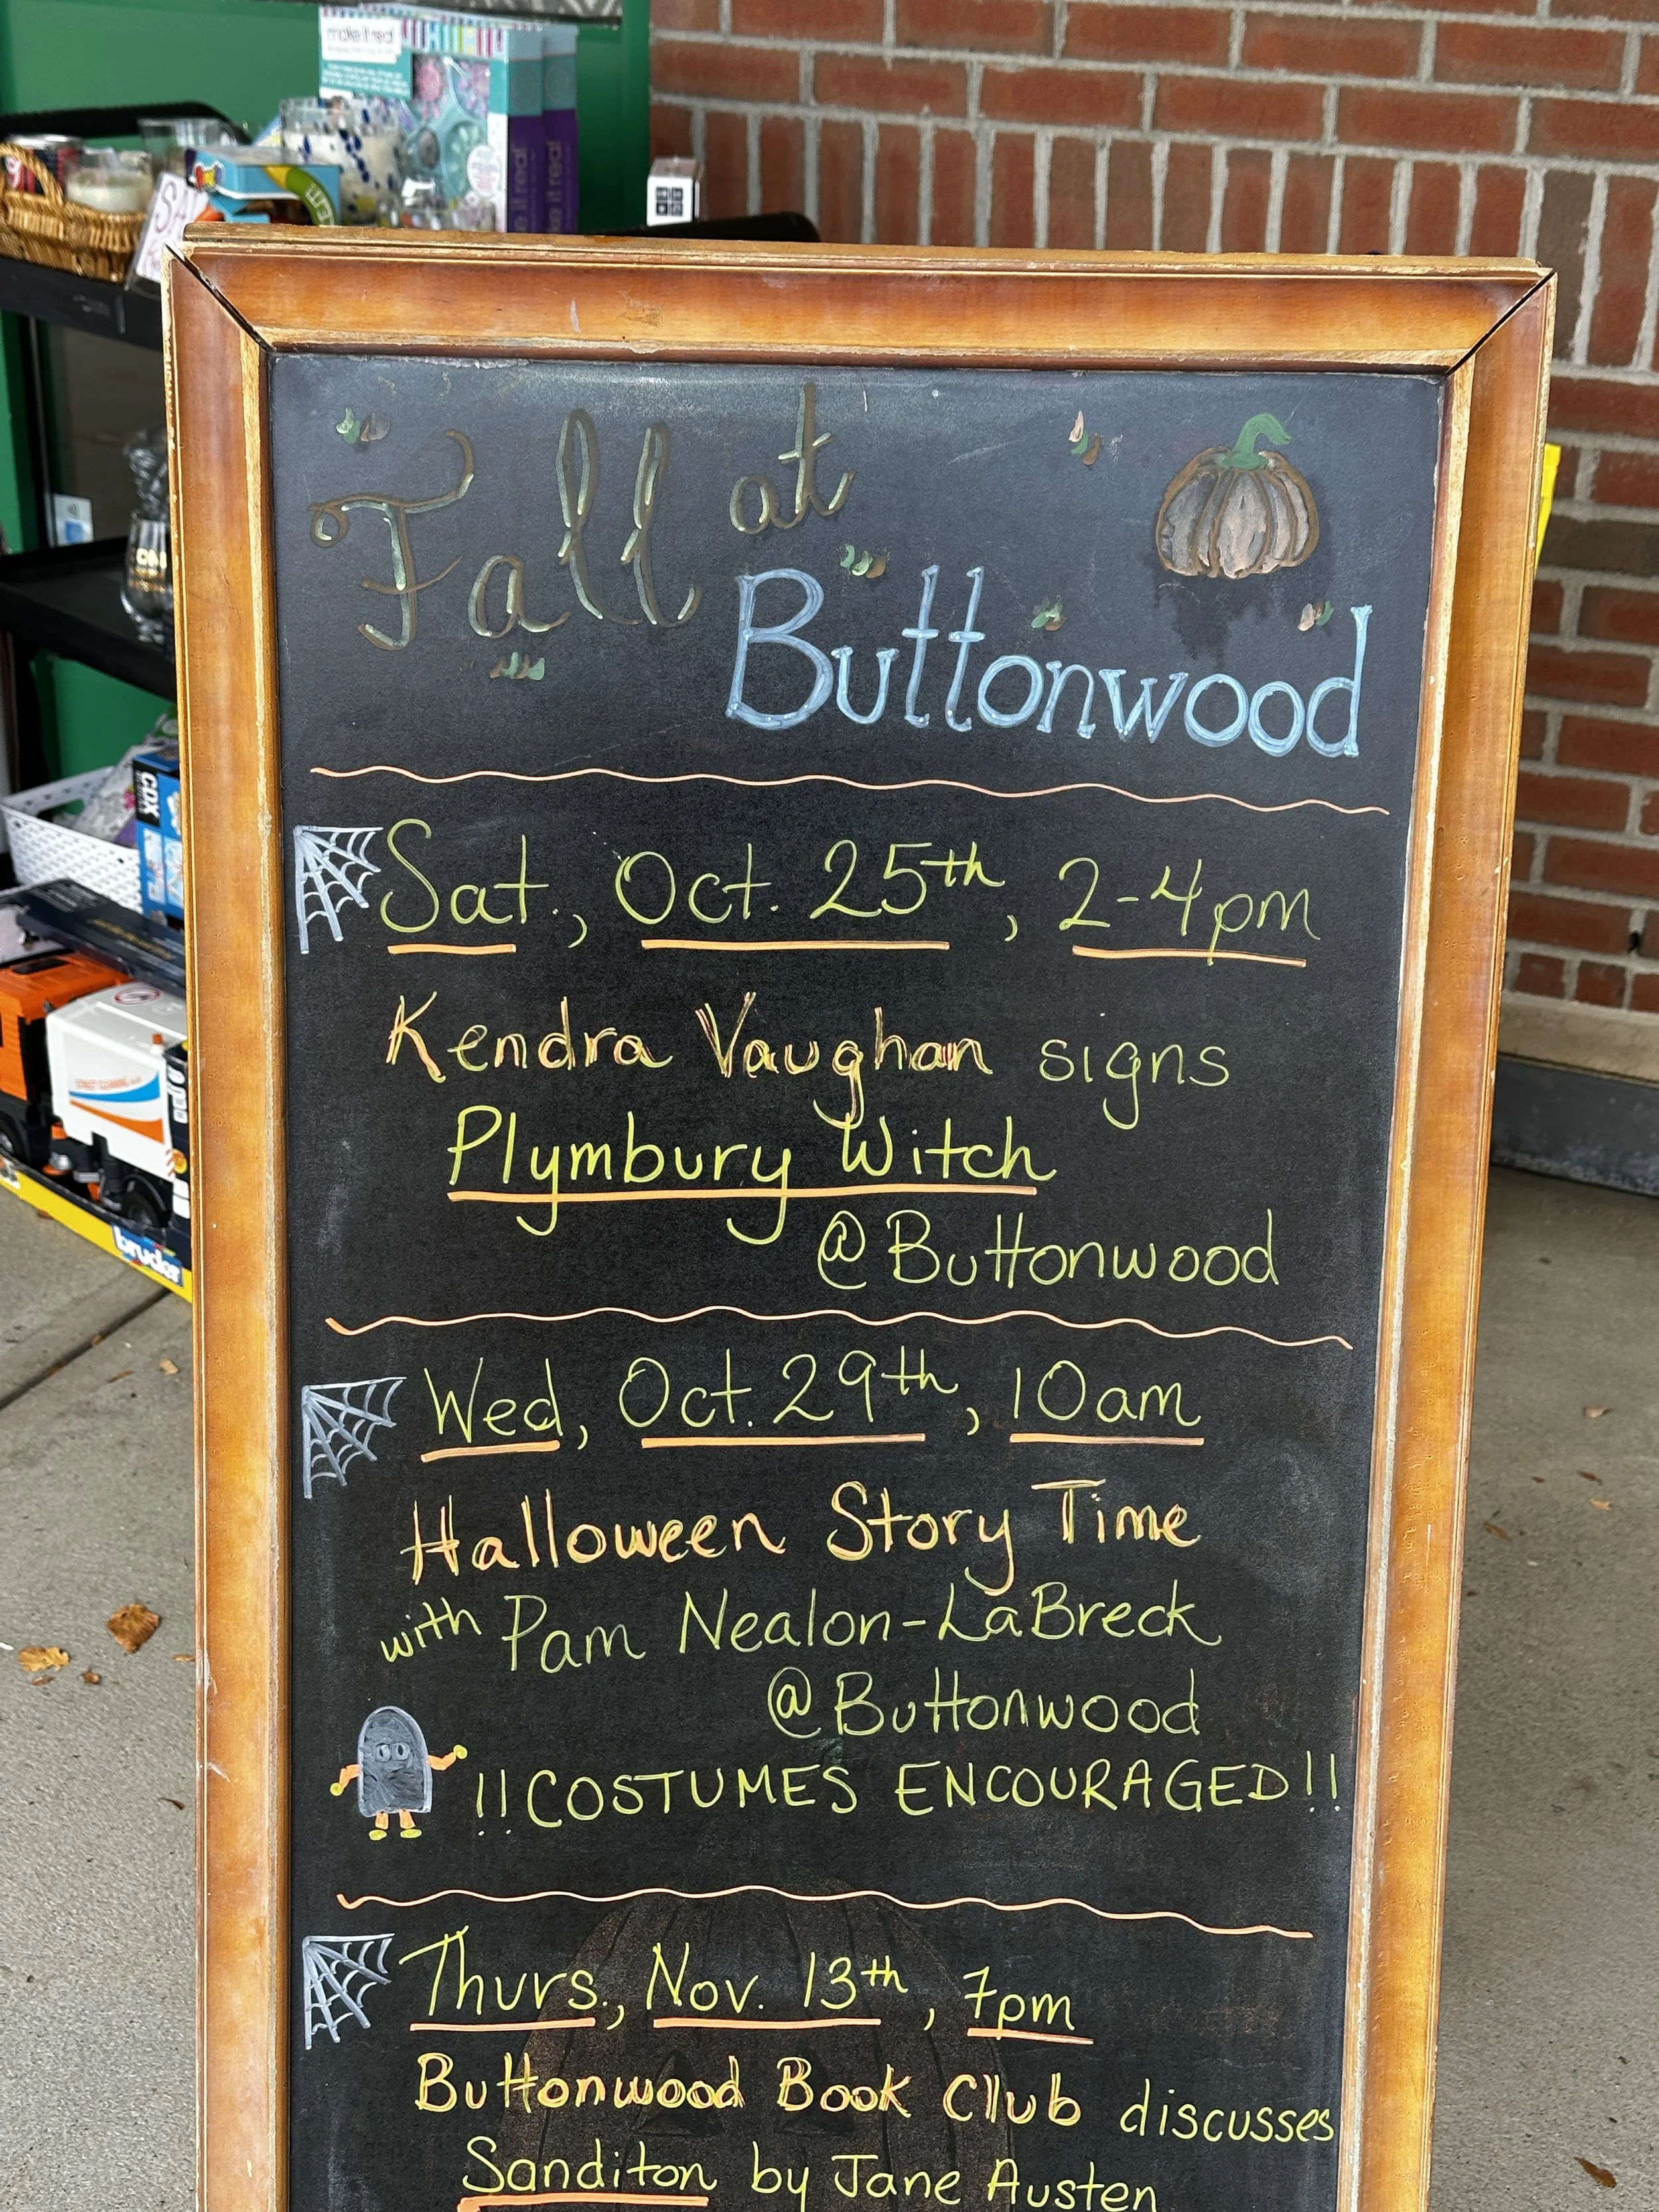 make it real
make it real
make it real
CDX
bruder
Fall at
Buttonwood
Sat., Oct. 25th, 2-4pm
Kendra Vaughan signs
Plymbury Witch
@Buttonwood
Wed, Oct. 29th, 10am
Halloween Story Time
with Pam Nealon-LaBreck
@Buttonwood
!!COSTUMES ENCOURAGED!!
Thurs., Nov. 13th, 7pm
Buttonwood Book Club discusses
Sanditon by Jane Austen